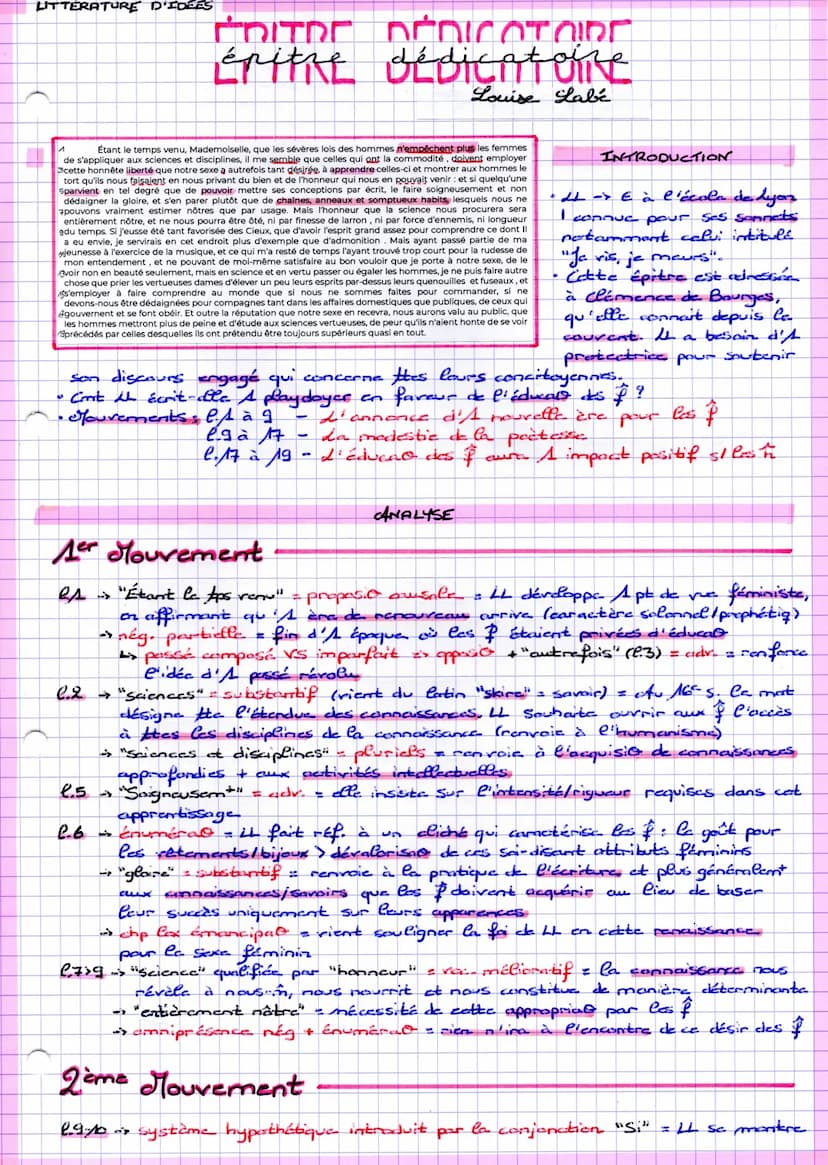 LITTÉRATURE D'IDÉES
ÉPITRE DÉDICATOIRE
épitre dédicatoire
Louise Labé
Étant le temps venu, Mademoiselle, que les sévères lois des hommes n'empêchent plus les femmes
de s'appliquer aux sciences et disciplines, il me semble que celles qui ont la commodité, doivent employer
3 cette honnête liberté que notre sexe a autrefois tant désirée, à apprendre celles-ci et montrer aux hommes le
tort qu'ils nous faisaient en nous privant du bien et de l'honneur qui nous en pouvait venir : et si quelqu'une
5 parvient en tel degré que de pouvoir mettre ses conceptions par écrit, le faire soigneusement et non
dédaigner la gloire, et s'en parer plutôt que de chaînes, anneaux et somptueux habits, lesquels nous ne
pouvons vraiment estimer nôtres que par usage. Mais l'honneur que la science nous procurera sera
entièrement nôtre, et ne nous pourra être ôté, ni par finesse de larron, ni par force d'ennemis, ni longueur
9 du temps. Si j'eusse été tant favorisée des Cieux, que d'avoir l'esprit grand assez pour comprendre ce dont il
a eu envie, je servirais en cet endroit plus d'exemple que d'admonition. Mais ayant passé partie de ma
jeunesse à l'exercice de la musique, et ce qui m'a resté de temps l'ayant trouvé trop court pour la rudesse de
mon entendement, et ne pouvant de moi-même satisfaire au bon vouloir que je porte à notre sexe, de le
voir non en beauté seulement, mais en science et en vertu passer ou égaler les hommes, je ne puis faire autre
chose que prier les vertueuses dames d'élever un peu leurs esprits par-dessus leurs quenouilles et fuseaux, et
s'employer à faire comprendre au monde que si nous ne sommes faites pour commander, si ne
devons-nous être dédaignées pour compagnes tant dans les affaires domestiques que publiques, de ceux qui
gouvernent et se font obéir. Et outre la réputation que notre sexe en recevra, nous aurons valu au public, que
les hommes mettront plus de peine et d'étude aux sciences vertueuses, de peur qu'ils n'aient honte de se voir
précédés par celles desquelles ils ont prétendu être toujours supérieurs quasi en tout.
INTRODUCTION
• LL -> E à l'école de Lyon
1 connue pour ses sonnets
notamment celui intitulé
"Je vis, je meurs".
• Cette épître est adressée
à Clémence de Bourges,
qu'elle connait depuis le
couvent. LL a besoin d'1
protectrice pour soutenir
son discours engagé qui concerne ttes leurs concitoyennes.
• Cmt LL écrit-elle 1 playdoyer en faveur de l'éducaø des f ?
• Mouvements : l.1 à 9 - L'annonce d'1 nouvelle ère pour les f
l.9 à 17 - La modestie de la poètesse
l.17 à 19 - L'éducaø des f aura 1 impact positif s/ les h
ANALYSE
1er Mouvement
l.1 -> "Étant le tps venu" = proposiø causale = LL développe 1 pt de vue féministe,
en affirmant qu'1 ère de renouveau arrive (caractère solennel/prophétiq)
-> nég. partielle = fin d'1 époque où les f étaient privées d'éducaø
↳ passé composé VS imparfait => opposiø + "autrefois" (l.3) = adv. = renforce
l'idée d'1 passé révolu
l.2 -> "sciences" = substantif (vient du latin "skire" = savoir) = Au 16e s. le mot
désigne tte l'étendue des connaissances, LL souhaite ouvrir aux f l'accès
à ttes les disciplines de la connaissance (renvoie à l'humanisme)
-> "sciences et disciplines" = pluriels = renvoie à l'acquisiø de connaissances
approfondies + aux activités intellectuelles
l.5 -> "Soigneusemt" = adv. = elle insiste sur l'intensité/rigueur requises dans cet
apprentissage
l.6 -> énuméraø = LL fait réf. à un cliché qui caractérise les f : le goût pour
les vêtements/bijoux > dévalorisaø de ces soi-disant attributs féminins
-> "gloire" = substantif = renvoie à la pratique de l'écriture et plus généralemt
aux connaissances/savoirs que les f doivent acquérir au lieu de baser
leur succès uniquement sur leurs apparences
-> chp lex émancipaø = vient souligner la foi de LL en cette renaissance
pour le sexe féminin
l.7>9 -> "science" qualifiée par "honneur" = voc. mélioratif = la connaissance nous
révèle à nous-m̂, nous nourrit et nous constitue de manière déterminante
-> "entièrement nôtre" = nécessité de cette appropriaø par les f
-> omniprésence nég + énuméraø = rien n'ira à l'encontre de ce désir des f
2ème Mouvement
l.9-10 -> système hypothétique introduit par la conjonction "Si" = LL se montre